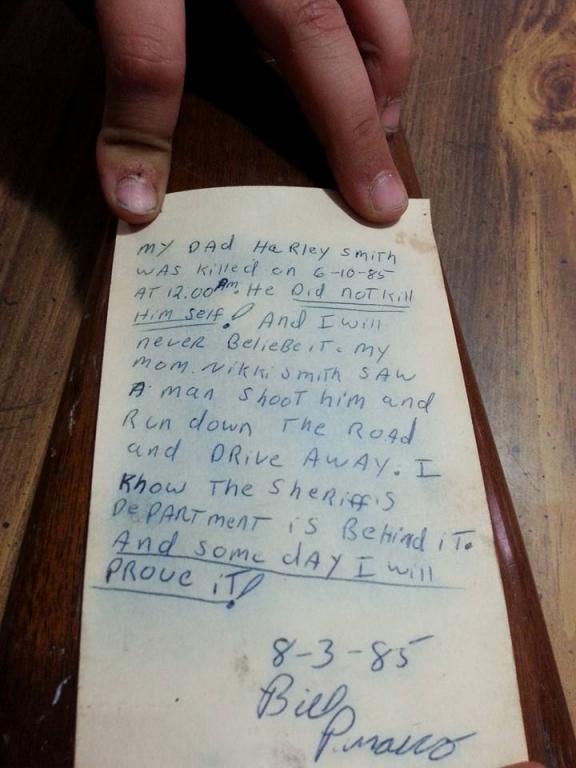 MY DAD HaRley smith
was killed on 6-10-85
AT 12.00 Am. He Did not kill
Him self! And I will
never BelieBe it. my
mom. Nikki smith SAW
A man shoot him and
Run down The ROAD
and DRive AWAY. I
Know The SheRiff's
DePARTMENT is BeHind iT.
And some dAY I will
PROVE iT!
8-3-85
Bill